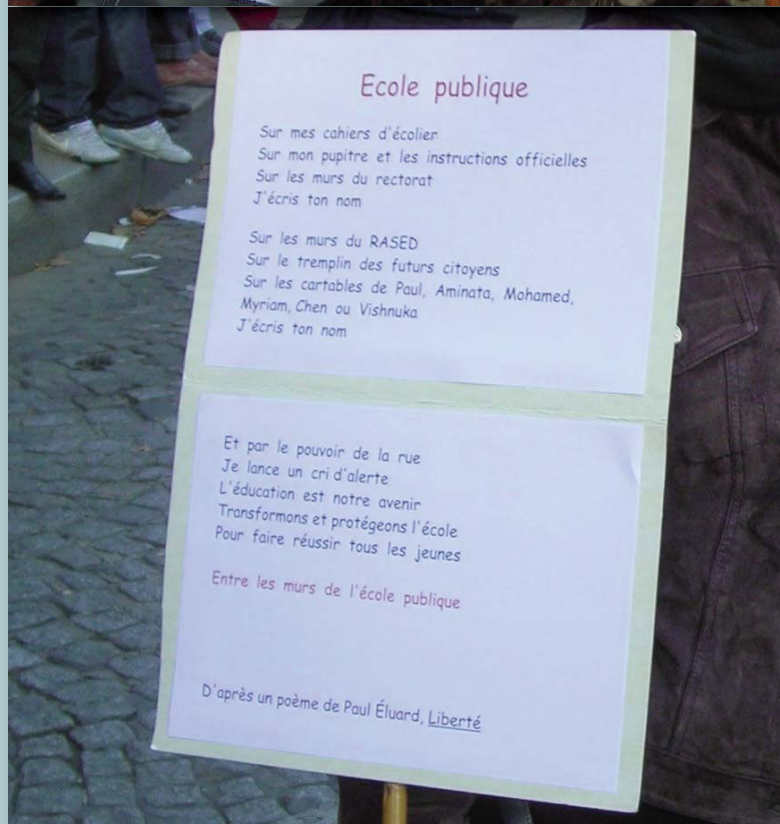 Ecole publique
Sur mes cahiers d'écolier
Sur mon pupitre et les instructions officielles
Sur les murs du rectorat
J'écris ton nom
Sur les murs du RASED
Sur le tremplin des futurs citoyens
Sur les cartables de Paul, Aminata, Mohamed,
Myriam, Chen ou Vishnuka
J'écris ton nom
Et par le pouvoir de la rue
Je lance un cri d'alerte
L'éducation est notre avenir
Transformons et protégeons l'école
Pour faire réussir tous les jeunes
Entre les murs de l'école publique
D'après un poème de Paul Éluard, Liberté